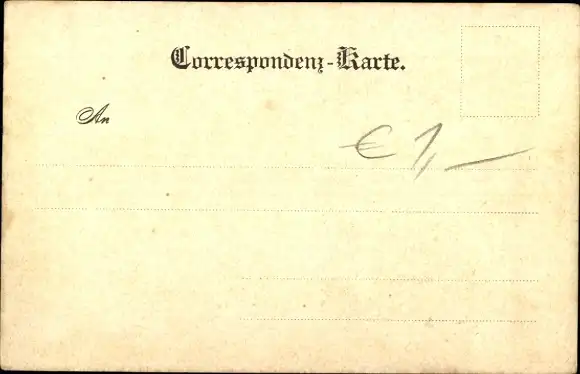 Correspondenz-Karte.
An
€ 1,—